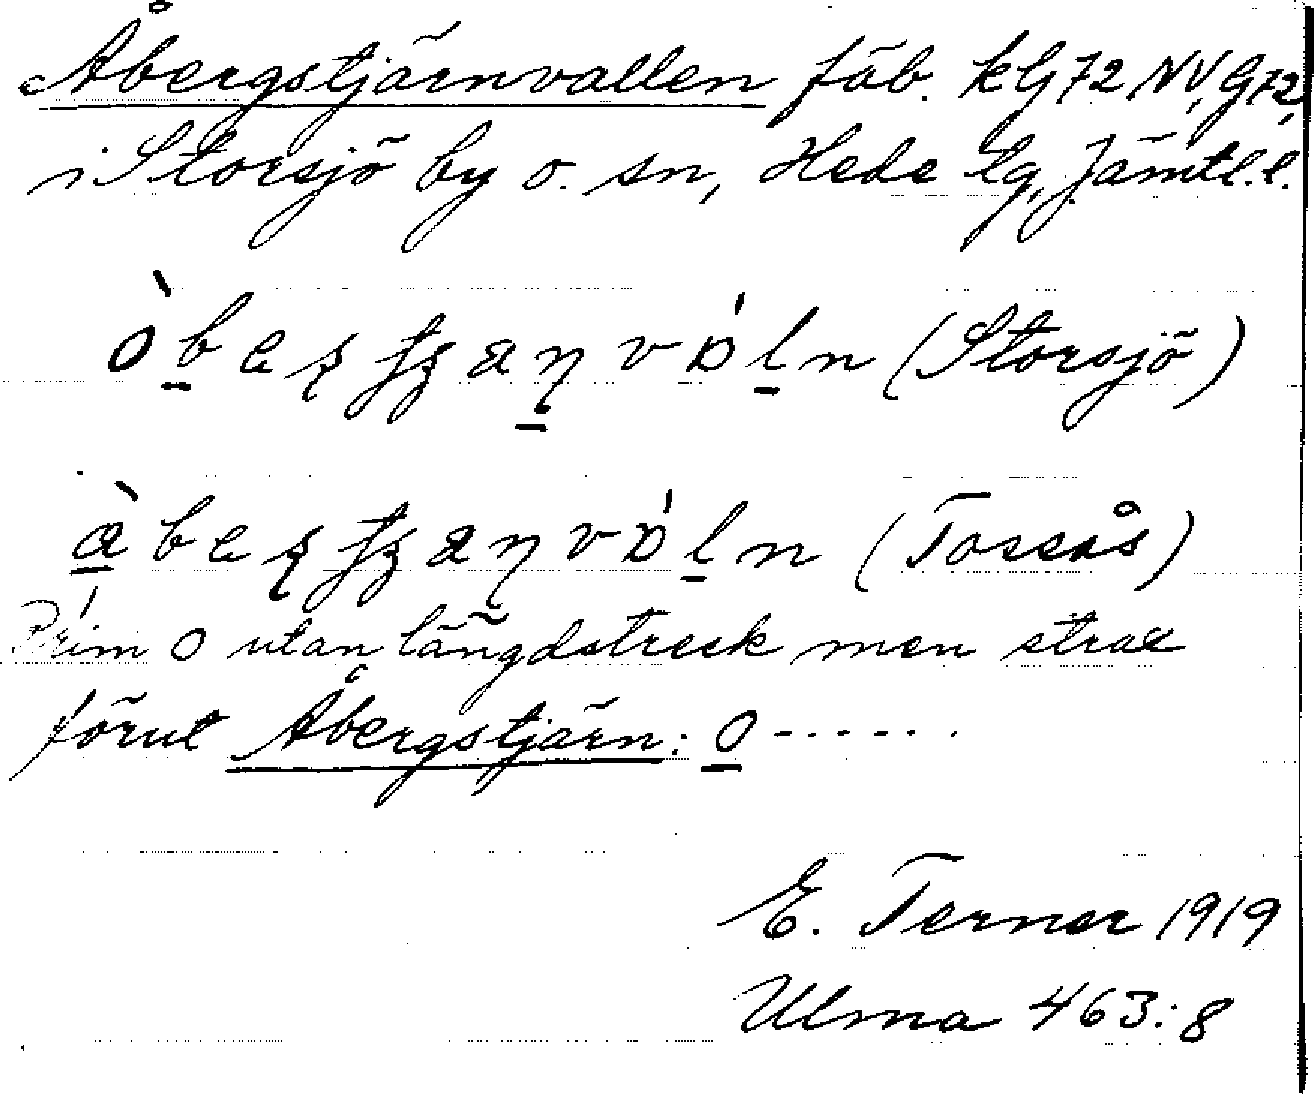 Åbergstjärnvallen fäb. kG72NV, G72,
i Storsjö by o. sn, Hede tg, Jämtl.l.
(Storsjö)
(Tossås)
Prim o utan längdstreck men strax
förut Åbergstjärn: o------
E. Terner 1919
Ulma 463:8